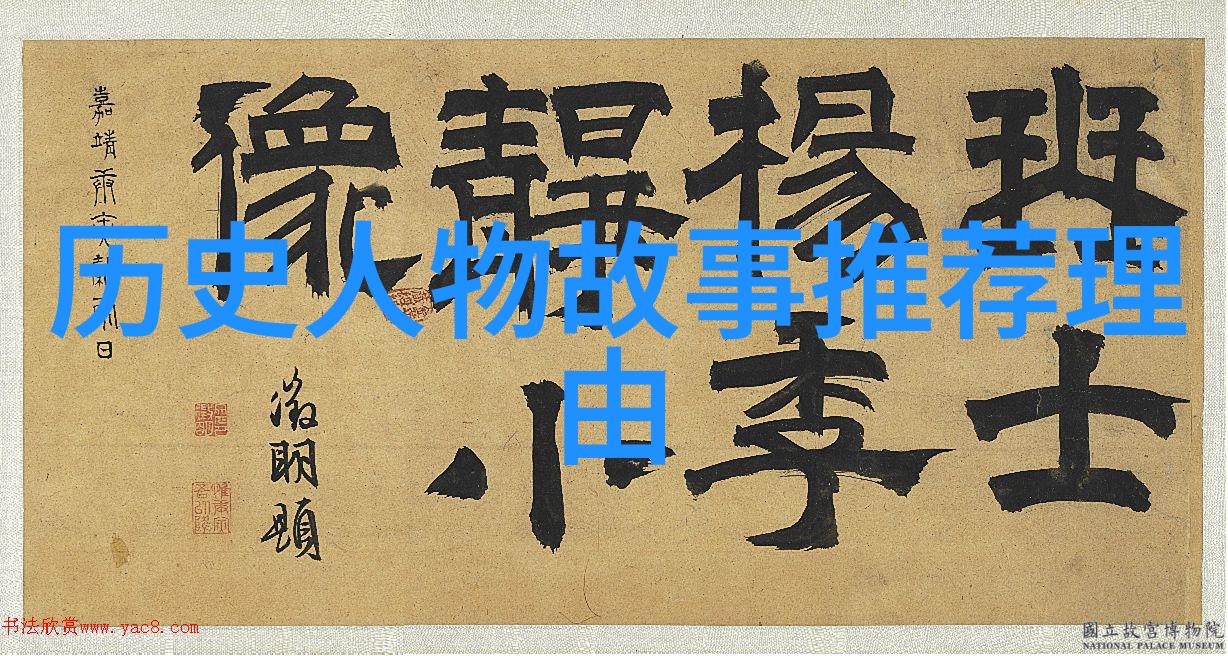 历史人物故事推荐理
由
琴士
楊季
靜小
像
嘉靖 日
徵明題
书法欣赏www.yac8.com
國立故宮博物院
NATIONAL PALACE MUSEUM